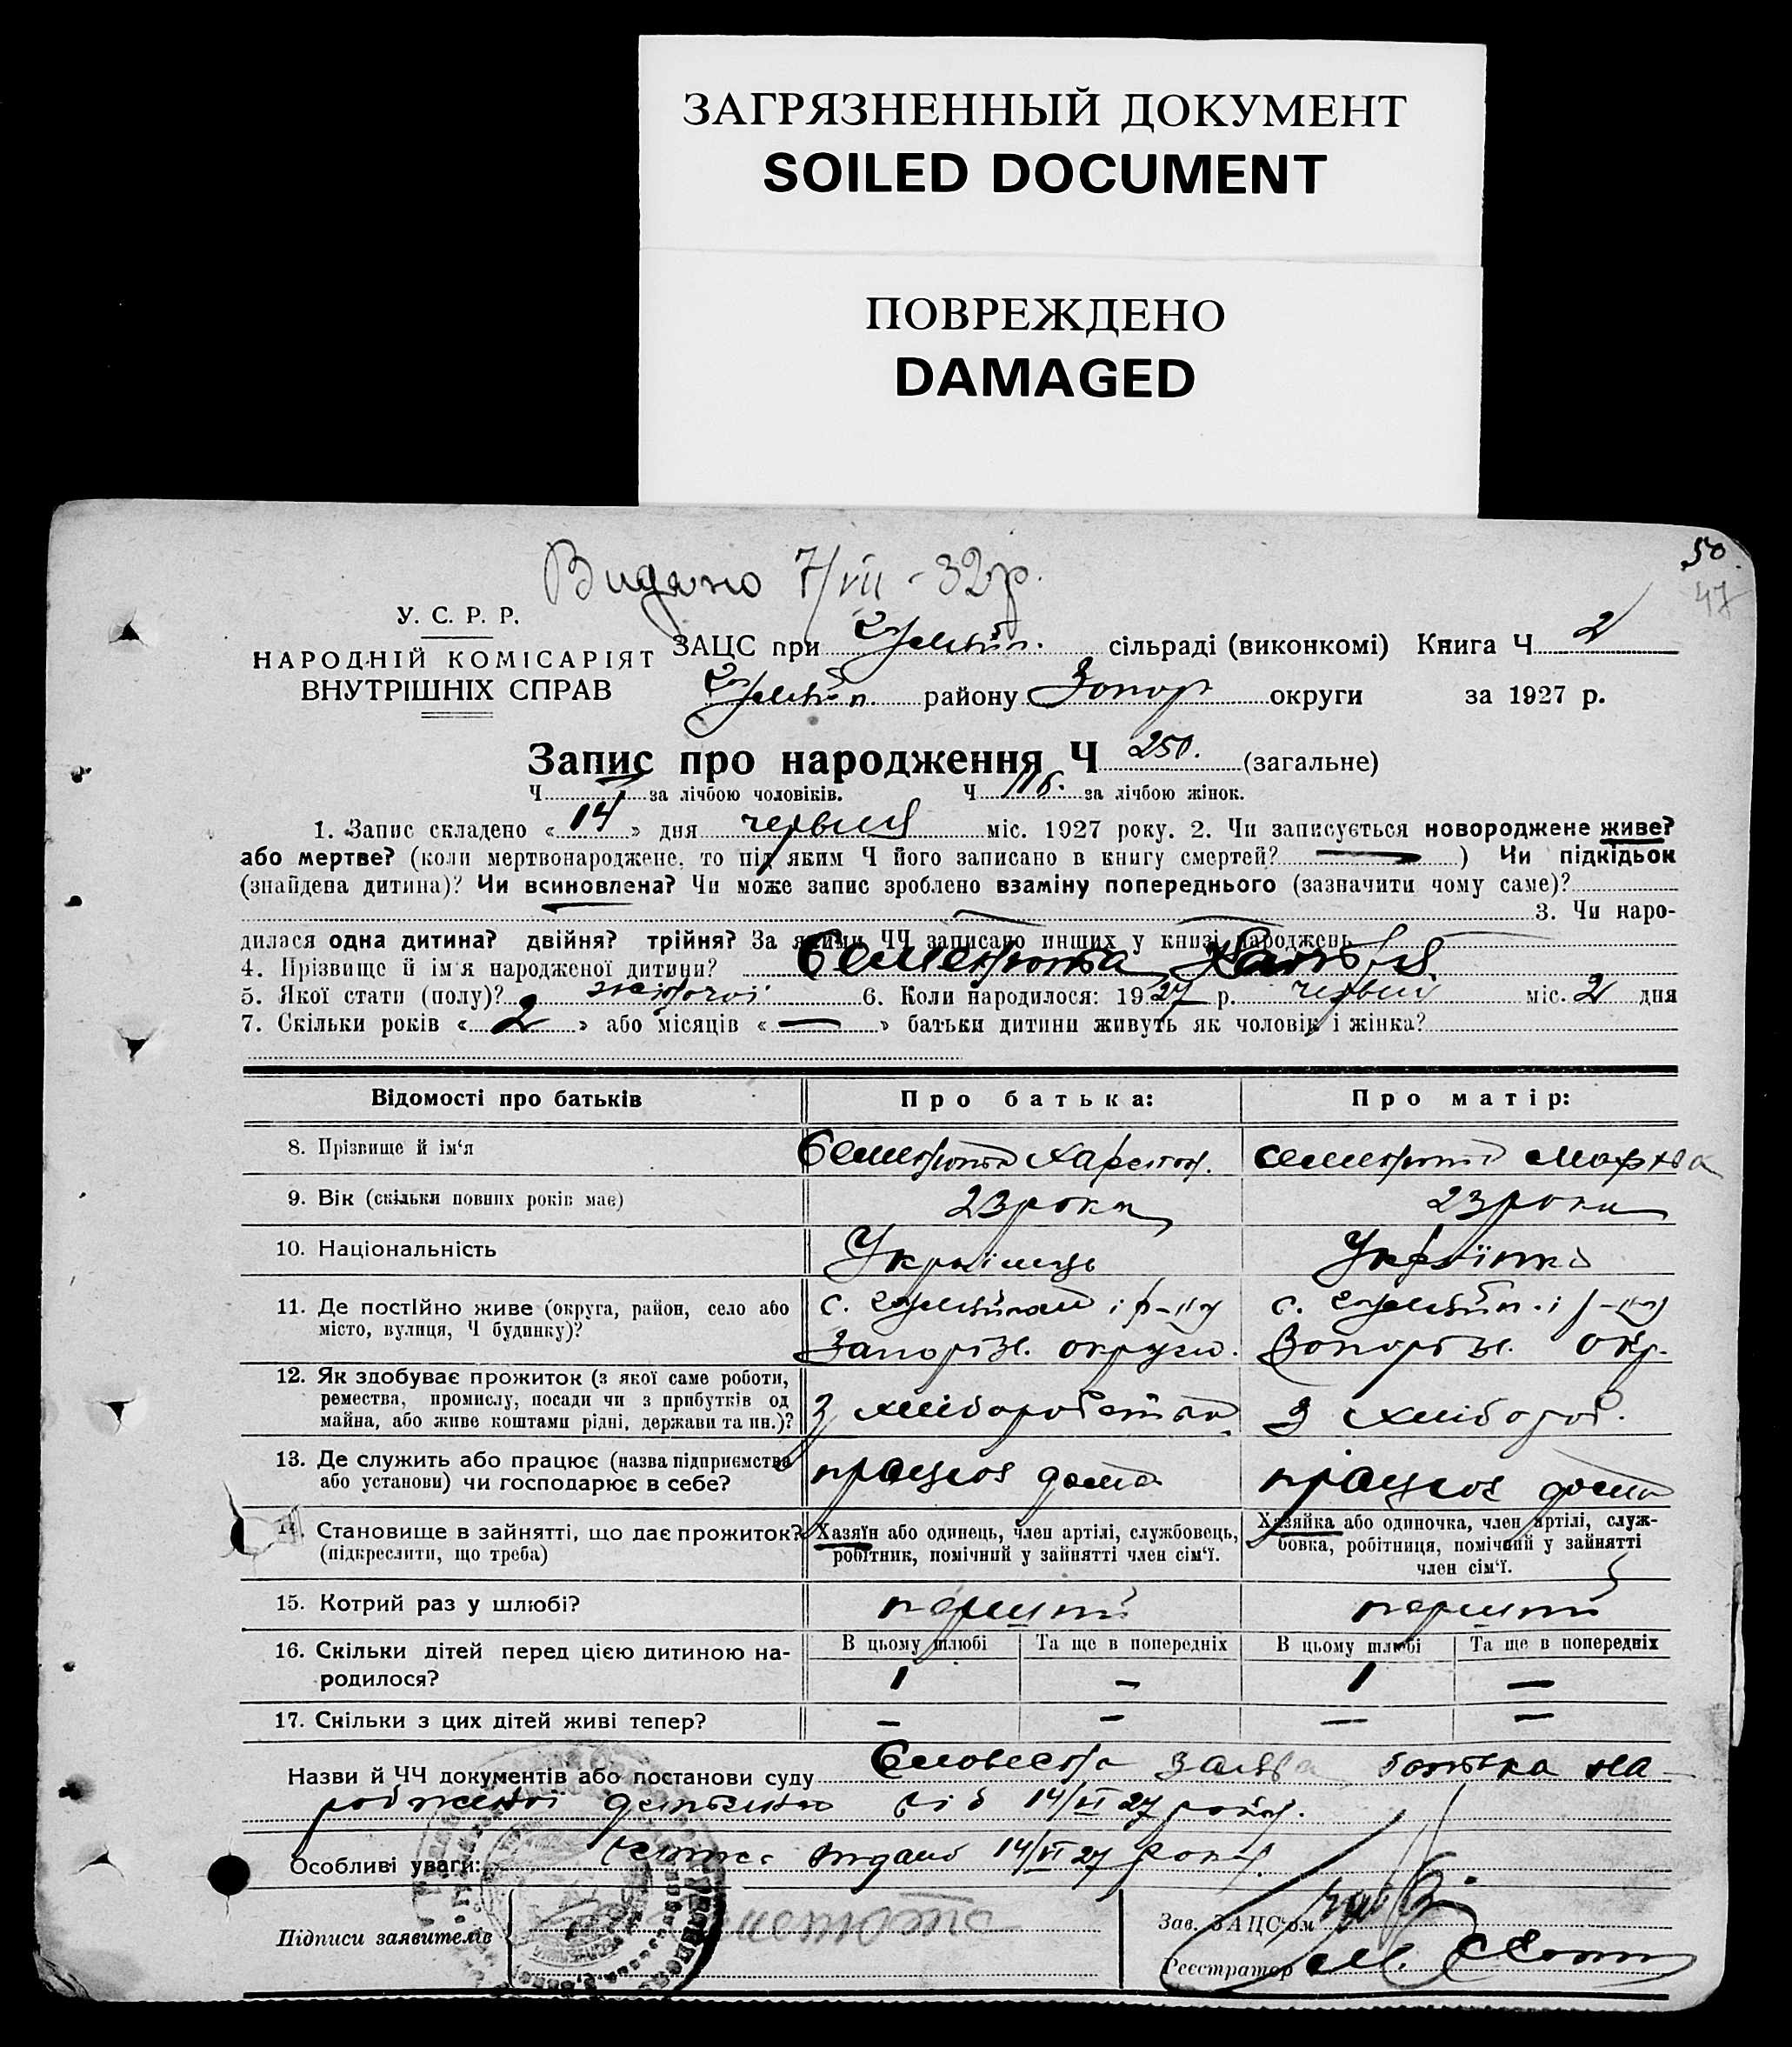 ЗАГРЯЗНЕННЫЙ ДОКУМЕНТ
SOILED DOCUMENT
ПОВРЕЖДЕНО
DAMAGED
50
47
Видано 7/VII - 32 р.
У. С. Р. Р.
НАРОДНІЙ КОМІСАРІЯТ
ВНУТРІШНІХ СПРАВ
ЗАЦС при сільраді (виконкомі) Книга Ч 2
району Запор округи за 1927 р.
Запис про народження Ч 250. (загальне)
Ч за лічбою чоловіків. Ч 116. за лічбою жінок.
1. Запис складено « 14 » дня червня міс. 1927 року. 2. Чи записується новороджене живе?
або мертве? (коли мертвонароджене, то під яким Ч його записано в книгу смертей? — ) Чи підкідьок
(знайдена дитина)? Чи всиновлена? Чи може запис зроблено взаміну попереднього (зазначити чому саме)?
3. Чи наро-
дилася одна дитина? двійня? трійня? За якими ЧЧ записано инших у книзі народжень
4. Прізвище й ім'я народженої дитини?
5. Якої стати (полу)? жіночої 6. Коли народилося: 1927 р. червня міс. 2 дня
7. Скільки років « 2 » або місяців « — » батьки дитини живуть як чоловік і жінка?
Відомості про батьків Про батька: Про матір:
8. Прізвище й ім'я
9. Вік (скільки повних років має) 23 роки 23 роки
10. Національність Українець Українка
11. Де постійно живе (округа, район, село або
місто, вулиця, Ч будинку)?
Запорізь. округи. Запорізь. окр.
12. Як здобуває прожиток (з якої саме роботи,
ремества, промислу, посади чи з прибутків од
майна, або живе коштами рідні, держави та ин.)? З хліборобства З хлібороб.
13. Де служить або працює (назва підприємства
або установи) чи господарює в себе? працює дома працює дома
14. Становище в зайнятті, що дає прожиток?
(підкреслити, що треба)
Хазяїн або одинець, член артілі, службовець,
робітник, помічний у зайнятті член сім'ї.
Хазяйка або одиночка, член артілі, служ-
бовка, робітниця, помічний у зайнятті
член сім'ї.
15. Котрий раз у шлюбі? перший перший
16. Скільки дітей перед цією дитиною на-
родилося?
В цьому шлюбі Та ще в попередніх В цьому шлюбі Та ще в попередніх
1 — 1 —
17. Скільки з цих дітей живі тепер? — — — —
Назви й ЧЧ документів або постанови суду Словесна заява батька на-
родженої дитини від 14/VI 27 року.
Особливі уваги: видано 14/VI 27 року.
Підписи заявителів
Зав. ЗАЦС'ом
Реєстратор